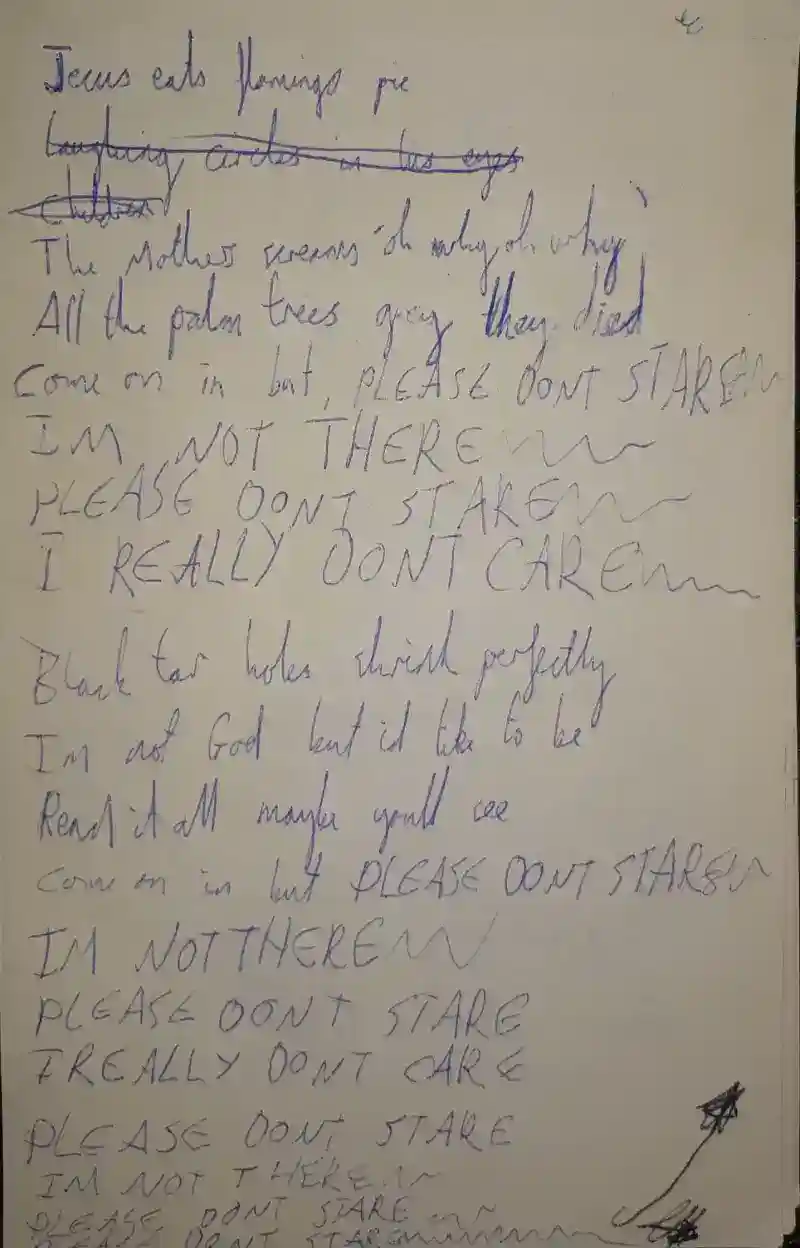 Jesus eats flamingo pie
Laughing circles in his eyes
Children
The Mother screams "oh why oh why"
All the palm trees grey they died
Come on in but, PLEASE DONT STARE
IM NOT THERE
PLEASE DONT STARE
I REALLY DONT CARE
Black tar holes shrink perfectly
Im not God but id like to be
Read it all maybe youll see
Come on in but PLEASE DONT STARE
IM NOT THERE
PLEASE DONT STARE
I REALLY DONT CARE
PLEASE DONT STARE
IM NOT THERE
PLEASE DONT STARE
PLEASE DONT STARE